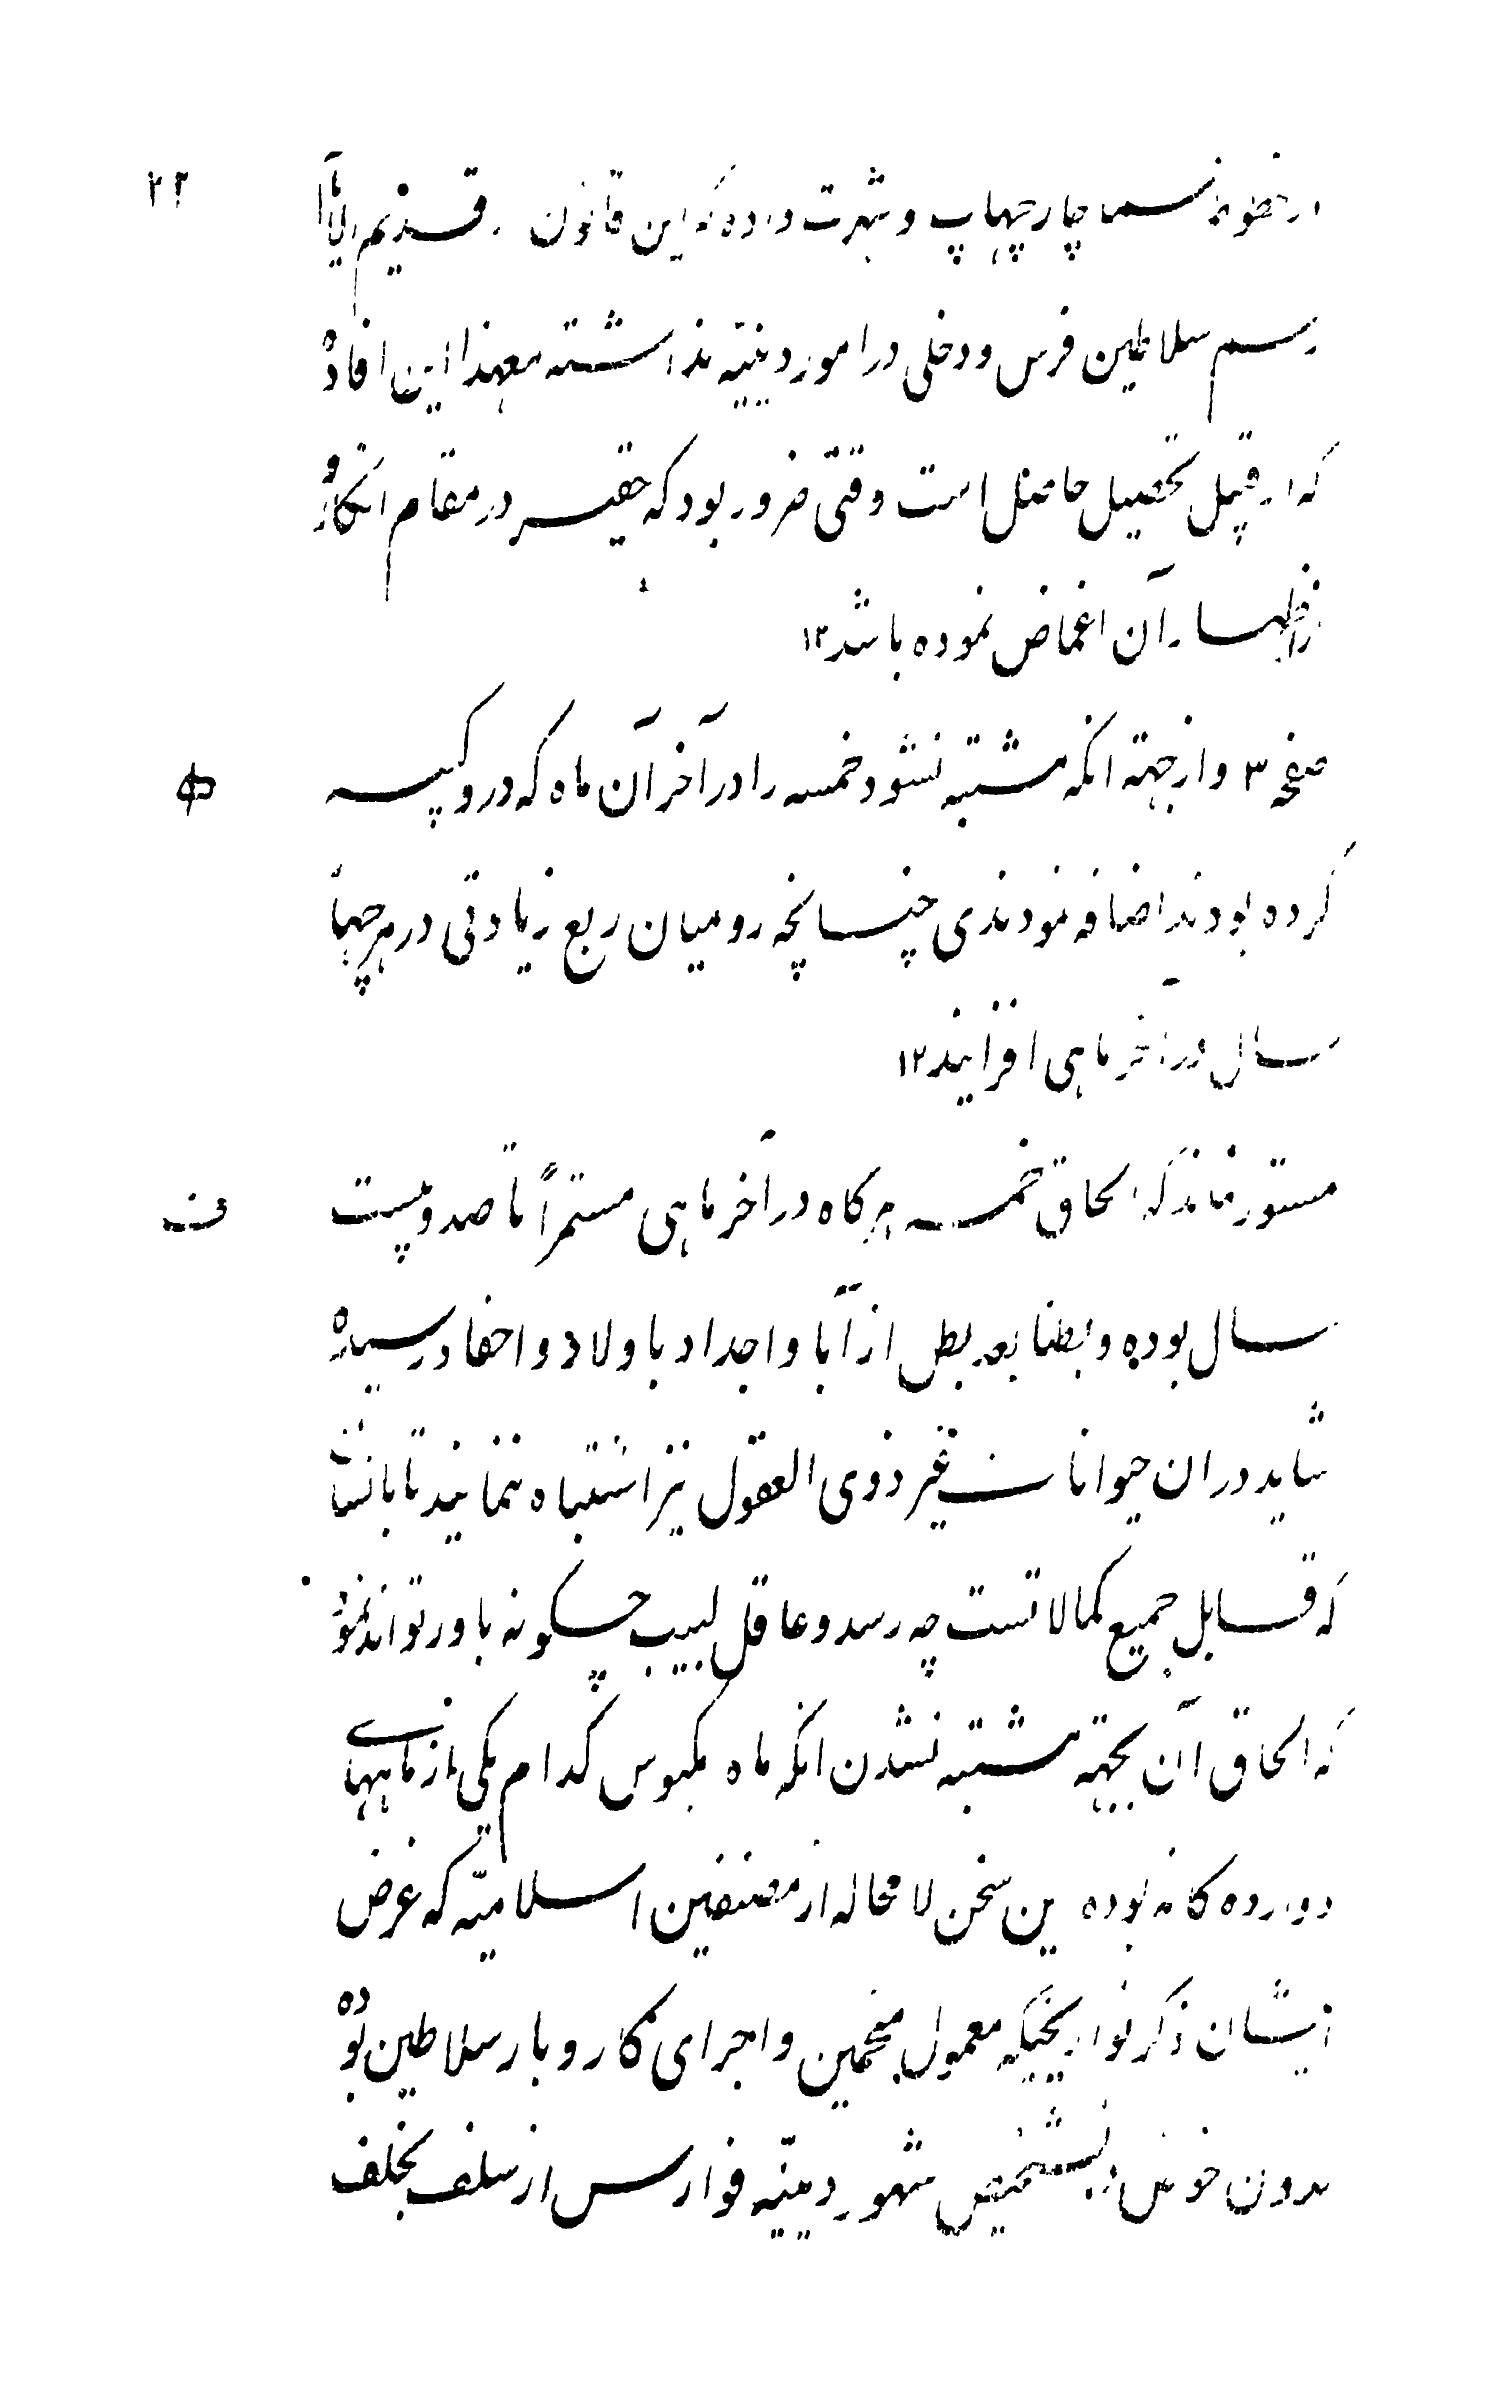 ۲۲
چار چهاپ و شهرت داده که این قانون قدیم الایام
رسم سلاطین فرس و دخلی در امور دینیّه نداشته معهذا این افاده
که از قبیل تحصیل حاصل است وقتی ضرور بود که حقیر در مقام انکار و
از اظهار آن اغماض نموده باشد ۱۲
صفحه ۳ و از جهته انکه مشتبه نشود خمسه را در آخر آن ماه که درو کبیسه
کرده بودند اضافه نمودندی چنانچه رومیان ربع زیادتی در هر چهار
سال در آخر ماهی افزایند ۱۲
مستور نماند که الحاق خمسه هر کاه در آخر ماهی مستمراً تا صد و بیست
ف
سال بوده و بطنا بعد بطن از آبا و اجداد با ولاد و احفاد رسیده
شاید دران حیوانات غیر ذوی العقول نیز اشتباه ننمایند تا بانسان
که قابل جمیع کمالاتست چه رسد و عاقل لبیب چکونه باور تواند نمود
که الحاق آن بجهته مشتبه نشدن انکه ماه مکبوس کدام یکی از ماههای
دوازده کانه بوده این سخن لا محاله از مصنفین اسلامیّه که غرض
ایشان ذکر تواریخیکه معمول منجمین و اجرای کار و بار سلاطین بوده
بدون خوض به تشخیص شهور دینیّه فوارس از سلف بخلف